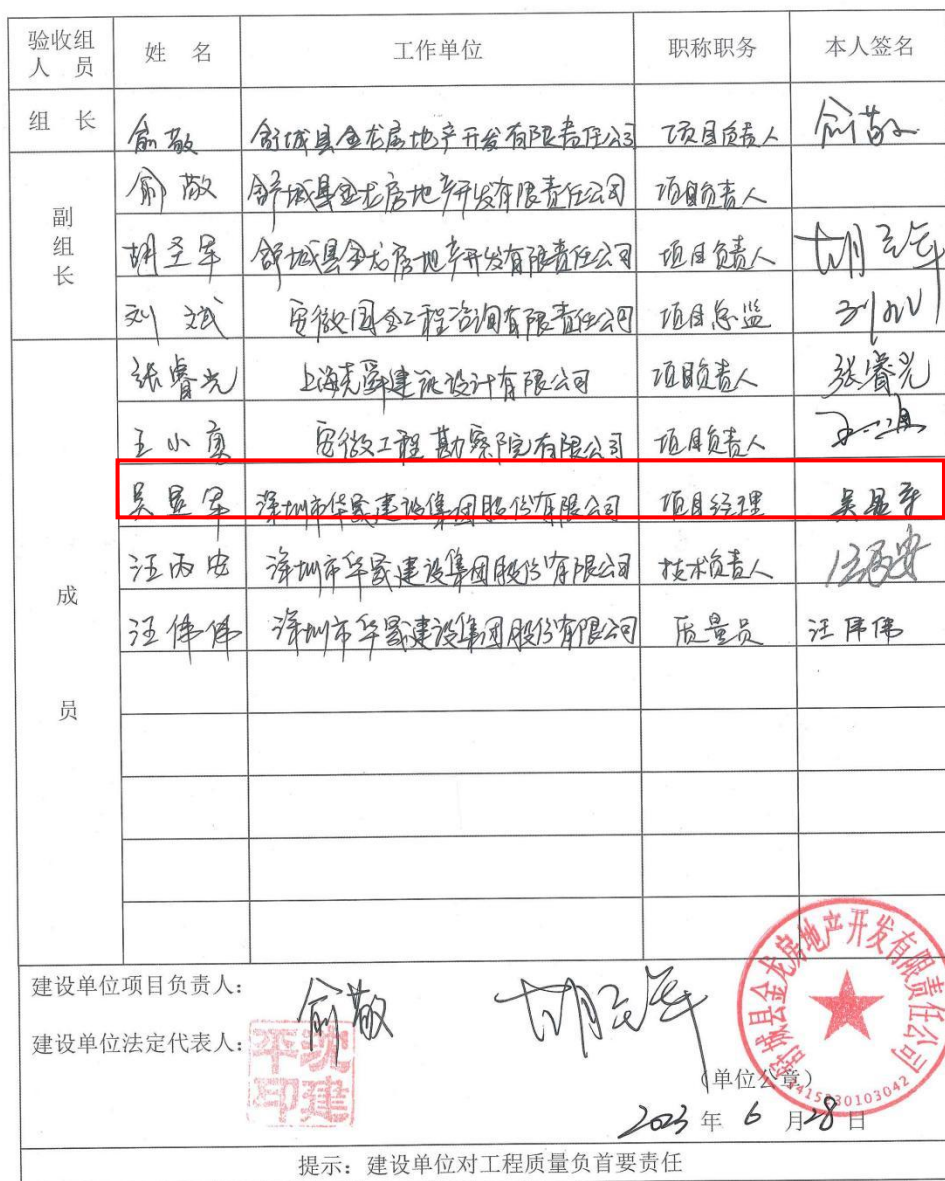 验收组人 员 姓 名 工作单位 职称职务 本人签名
组 长 俞敬 舒城县金龙房地产开发有限责任公司 项目负责人 俞敬
副组长 俞敬 舒城县金龙房地产开发有限责任公司 项目负责人
胡圣军 舒城县金龙房地产开发有限责任公司 项目负责人 胡圣军
刘斌 安徽国金工程咨询有限责任公司 项目总监 刘斌
成员 张睿光 上海尧舜建筑设计有限公司 项目负责人 张睿光
王小勇 安徽工程勘察院有限公司 项目负责人
吴显军 深圳市华晟建设集团股份有限公司 项目经理 吴显军
汪丙安 深圳市华晟建设集团股份有限公司 技术负责人 汪丙安
汪伟伟 深圳市华晟建设集团股份有限公司 质量员 汪伟伟
建设单位项目负责人： 俞敬 胡圣军
建设单位法定代表人： 沈建平印
舒城县金龙房地产开发有限责任公司
（单位公章）
2023 年 6 月 28 日
提示：建设单位对工程质量负首要责任